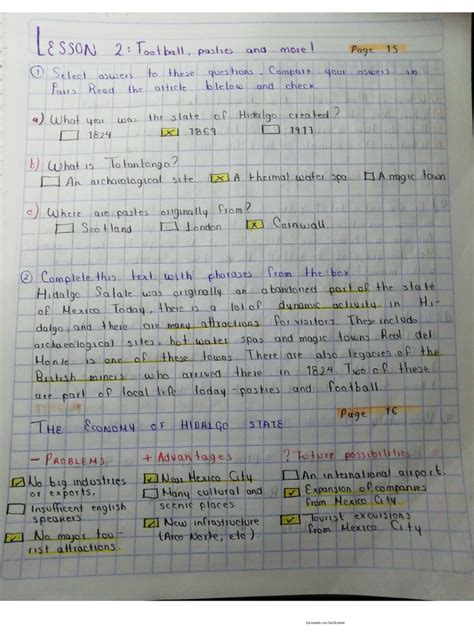 LESSON 2: Football, pasties and more! Page 15
① Select aswers to these questions. Compare your aswers in
Pairs Read the article blelow and check.
a) What year was the state of Hidalgo created?
1824 x 1869 1917
b) What is Tolantongo?
An archaiological site x A thermal water spa A magic town
c) Where are pastes originally from?
Scotland London x Cornwall
② Complete this text with phrases from the box
Hidalgo Salale was originally an abandoned part of the state
of Mexico Today, there is a lot of dynamic activity in Hi-
dalgo, and there are many attractions for visitors These include
archaeological sites, hot water spas and magic towns Real del
Monte is one of these towns There are also legacies of the
British miners who arrived there in 1824 Two of these
are part of local life today-pasties and football.
Page 16
THE ECONOMY OF HIDALGO STATE
- PROBLEMS + Advantages ? Future possibilities
✓ No big industries ✓ Near Mexico City An international airport.
or exports. Many cultural and ✓ Expansion of companies
Insufficient english scenic places from Mexico City
speakers ✓ New infrastructure ✓ Tourist excursions
✓ No major tou- (Arco Norte, etc) from Mexico City
rist attractions